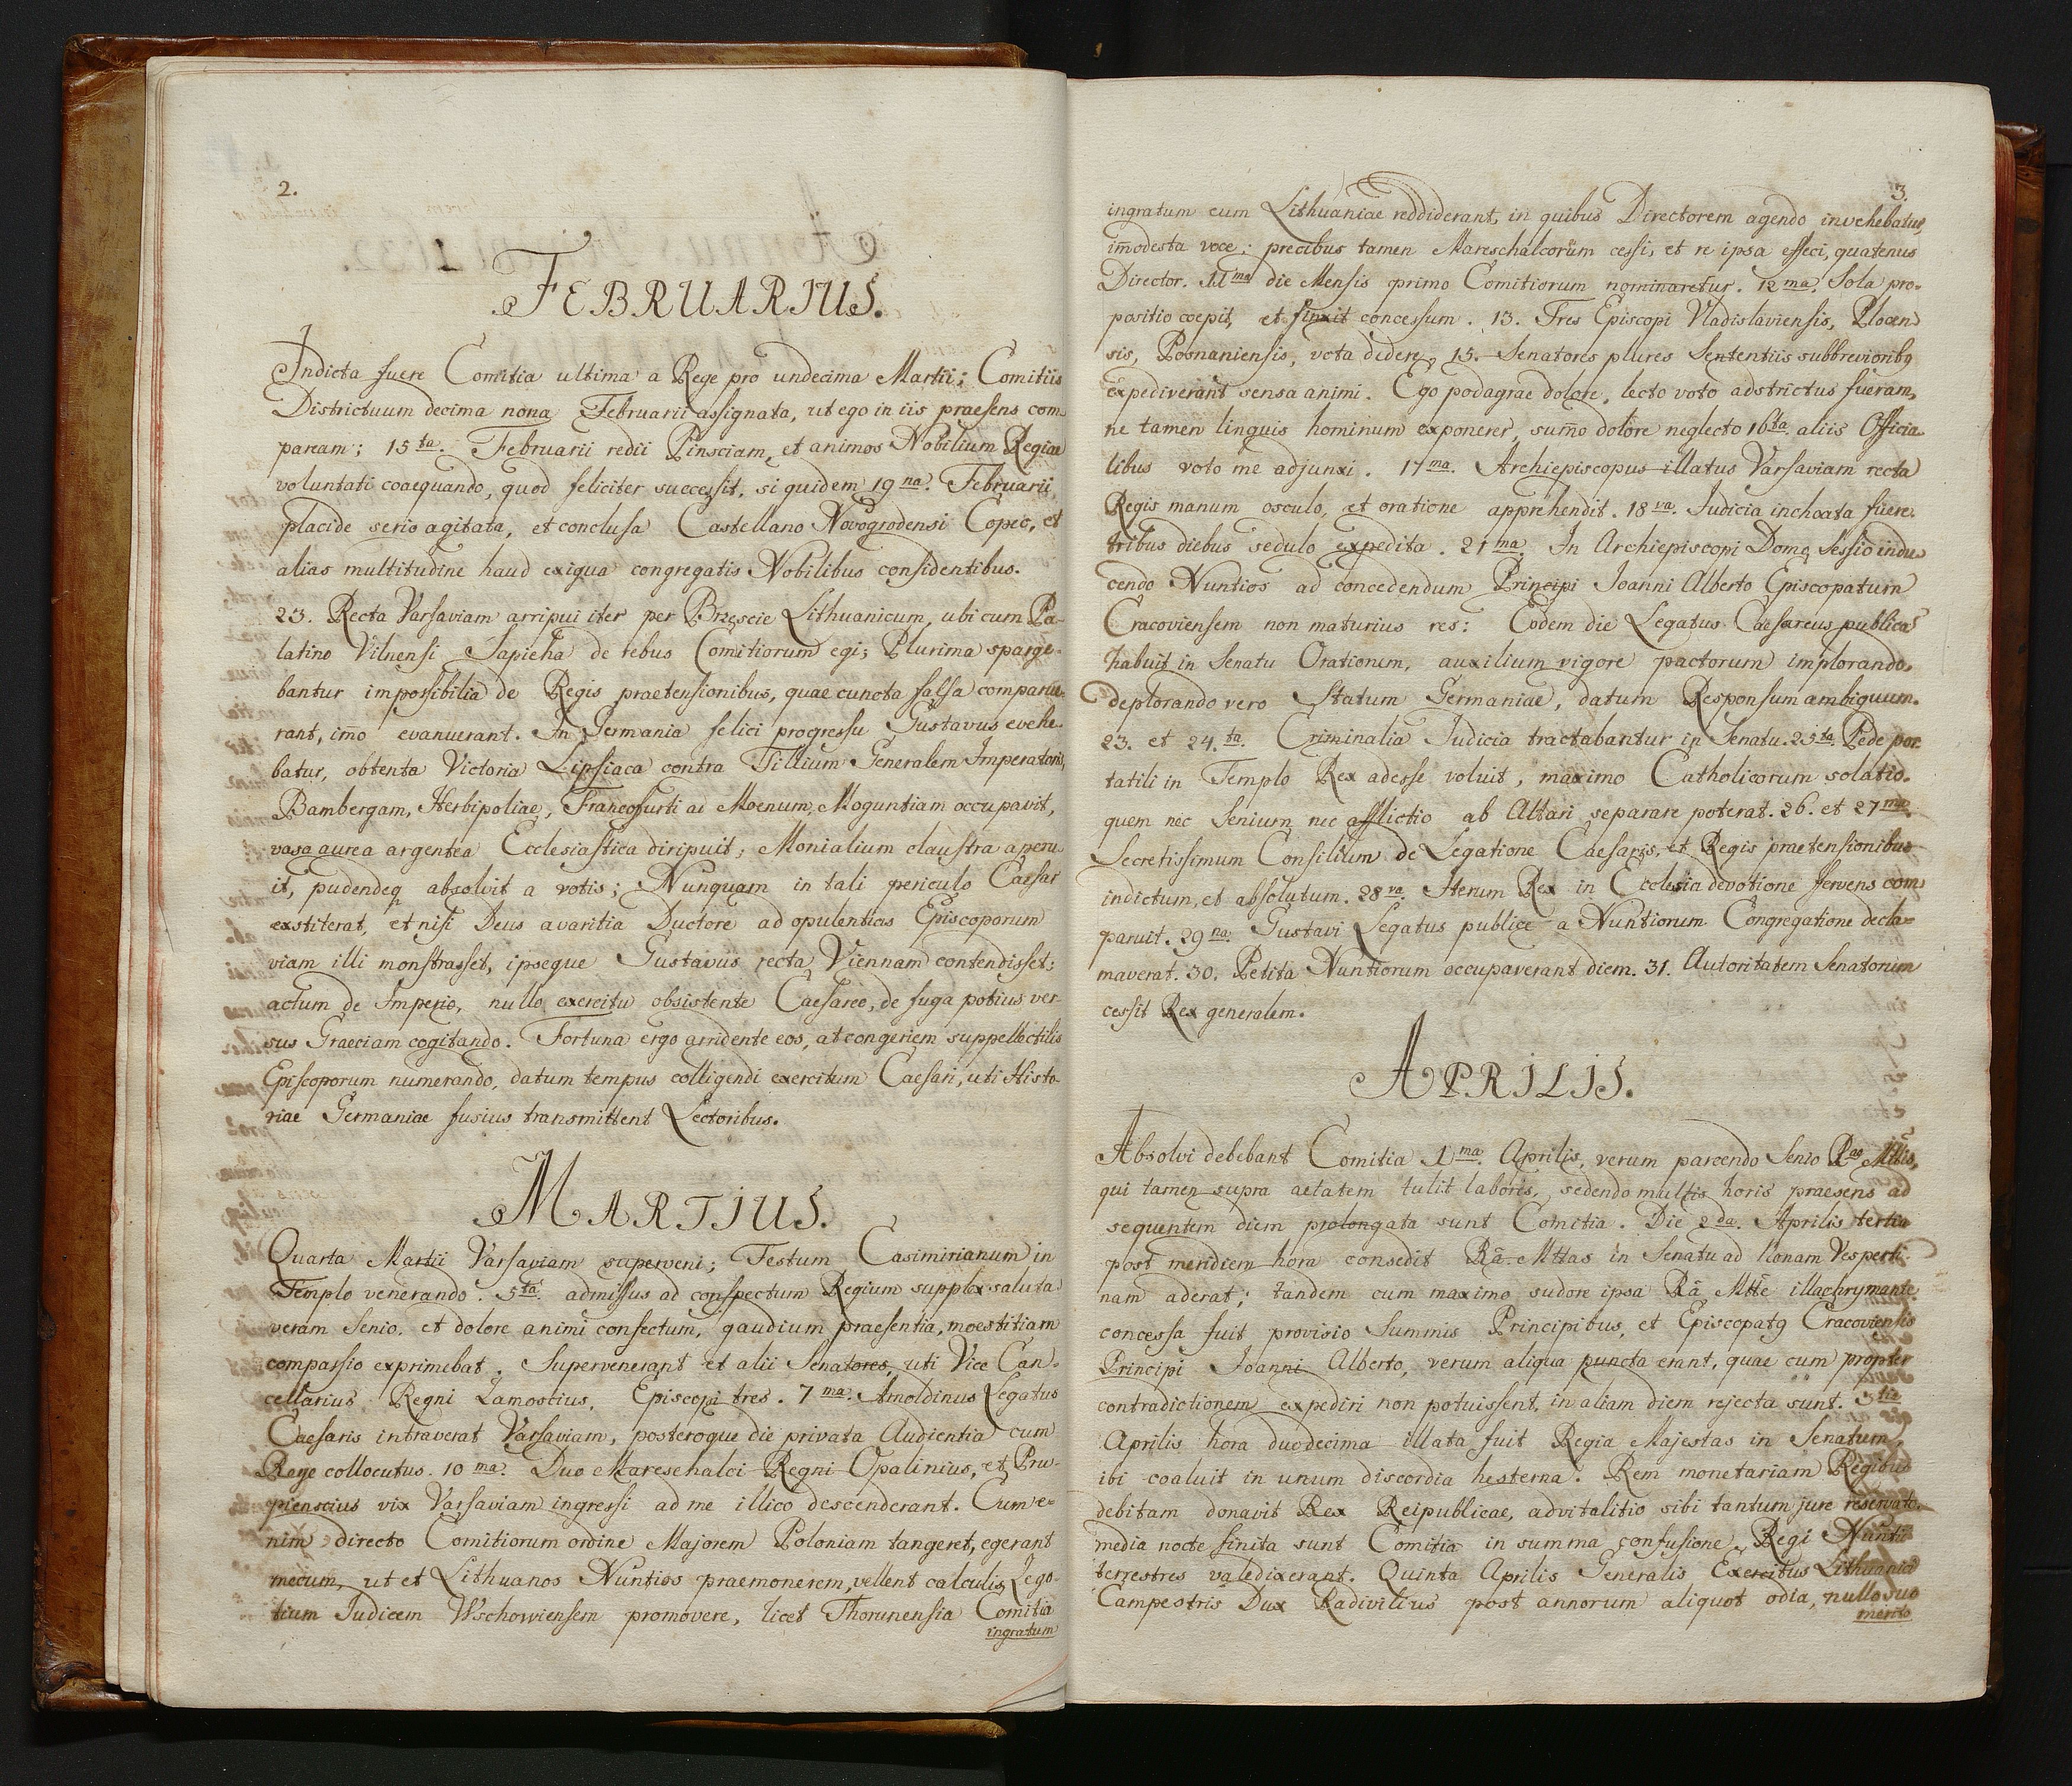 2.
FEBRUARIUS.
Indicta fuere Comitia ultima a Rege pro undecima Martii; Comitiis
Districtuum decima nona Februarii assignata, ut ego in iis praesens com-
paream; 15ta. Februarii redii Pinsciam, et animos Nobilium Regiae
voluntati coaequando, quod feliciter successit, siquidem 19na. Februarii
placide serio agitata, et conclusa Castellano Novogrodensi Copec, et
alias multitudine haud exigua congregatis Nobilibus considentibus.
23. Recta Varsaviam arripui iter per Brzescie Lithuanicum, ubi cum Pa-
latino Vilnensi Sapieha de rebus Comitiorum egi; Plurima sparge-
bantur impossibilia de Regis praetensionibus, quae cuncta falsa comparue-
rant, im̄o evanuerant. In Germania felici progressu Gustavus evehe-
batur, obtenta Victoria Lipsiaca contra Tillium Generalem Imperatoris,
Bambergam, Herbipoliae, Francofurti ad Moenum, Moguntiam occupavit,
vasa aurea argentea Ecclesiastica diripuit, Monialium claustra aperu
it, pudendeq absolvit a votis; Nunquam in tali periculo Caesar
exstiterat, et nisi Deus avaritia Ductore ad opulentias Episcoporum
viam illi monstrasset, ipseque Gustavus recta Viennam contendisset;
actum de Imperio, nullo exercitu obsistente Caesareo, de fuga potius ver-
sus Graeciam cogitando. Fortuna ergo arridente eos, at congeriem suppellectilis
Episcoporum numerando, datum tempus colligendi exercitum Caesari, uti Histo-
riae Germaniae fusius transmittent Lectoribus.
MARTIUS.
Quarta Martii Varsaviam superveni; Festum Casimirianum in
Templo venerando. 5ta. admissus ad conspectum Regium supplex saluta
veram Senio, et dolore animi confectum, gaudium praesentia, moestitiam
compassio exprimebat. Supervenerant et alii Senatores, uti Vice Can-
cellarius Regni Zamoscius, Episcopi tres. 7ma. Arnoldinus Legatus
Caesaris intraverat Varsaviam, posteroque die privata Audientia cum
Rege collocutus. 10ma. Duo Mareschalci Regni Opalinius, et Prus-
pienscius vix Varsaviam ingressi ad me illico descenderant. Cum e-
nim directo Comitiorum ordine Majorem Poloniam tangeret, egerant
mecum, ut et Lithuanos Nuntios praemonerem, vellent calculis Lego-
tium Judicem Wschowiensem promovere, licet Thorunensia Comitia
ingratum
3.
ingratum eum Lithuaniae reddiderant, in quibus Directorem agendo invehebatur,
im̄odesta voce: precibus tamen Mareschalcorum cessi, et re ipsa effeci, quatenus
Director. 11ma die Mensis primo Comitiorum nominaretur. 12ma. Sola pro-
positio coepit, et finxit concessum. 13. Tres Episcopi Vladislaviensis, Plocen
sis, Posnaniensis, vota dedere, 15. Senatores plures Sententiis subbrevioribq
expediverant sensa animi. Ego podagrae dolore, lecto voto adstrictus fueram,
ne tamen linguis hominum exponerer, sum̄o dolore neglecto 16ta. aliis Officia
libus voto me adjunxi. 17ma. Archiepiscopus illatus Varsaviam recta
Regis manum osculo, et oratione apprehendit. 18va. Judicia inchoata fuere.
tribus diebus sedulo expedita. 21ma. In Archiepiscopi Domo Sessio indu
cendo Nuntios ad concedendum Principi Joanni Alberto Episcopatum
Cracoviensem non maturius res: Eodem die Legatus Caesareus publica
habuit in Senatu Orationem, auxilium vigore pactorum implorando,
deplorando vero Statum Germaniae, datum Responsum ambiguum.
23. et 24.ta. Criminalia Judicia tractabantur in Senatu. 25ta. Pede por-
tatili in Templo Rex adesse voluit, maximo Catholicorum solatio.
quem nec Senium nec afflictio ab Altari separare poterat. 26. et 27ma.
Secretissimum Consilium de Legatione Caesaris, et Regis praetensionibus
indictum, et absolutum. 28va. Iterum Rex in Ecclesia devotione fervens com
paruit. 29na. Gustavi Legatus publice a Nuntiorum Congregatione decla-
maverat. 30. Petita Nuntiorum occupaverant diem. 31. Autoritatem Senatorum
cessit Rex generalem.
APRILIS.
Absolvi debebant Comitia 1ma. Aprilis, verum parcendo Senio Rae Mttis,
qui tamen supra aetatem tulit laboris, sedendo multis horis praesens ad
sequentem diem prolongata sunt Comitia. Die 2da. Aprilis tertia
post meridiem hora consedit Rā Mttas in Senatu ad Nonam Vesperti-
nam aderat; tandem cum maximo sudore ipsa Rā Mtte illachrymante
concessa fuit provisio Summis Principibus, et Episcopatq Cracoviensis
Principi Joanni Alberto, verum aliqua puncta erant, quae cum propter
contradictionem expediri non potuissent, in aliam diem rejecta sunt. 3tia
Aprilis hora duodecima illata fuit Regia Majestas in Senatum,
ibi coaluit in unum discordia hesterna. Rem monetariam Regibus
debitam donavit Rex Reipublicae, advitalitio sibi tantum jure reservato.
media nocte finita sunt Comitia in summa confusione, Regi Nuntii
terrestres valedixerant. Quinta Aprilis Generalis Exercitus Lithuaniae
Campestris Dux Radivilius post annorum aliquot odia, nullo suo
merito